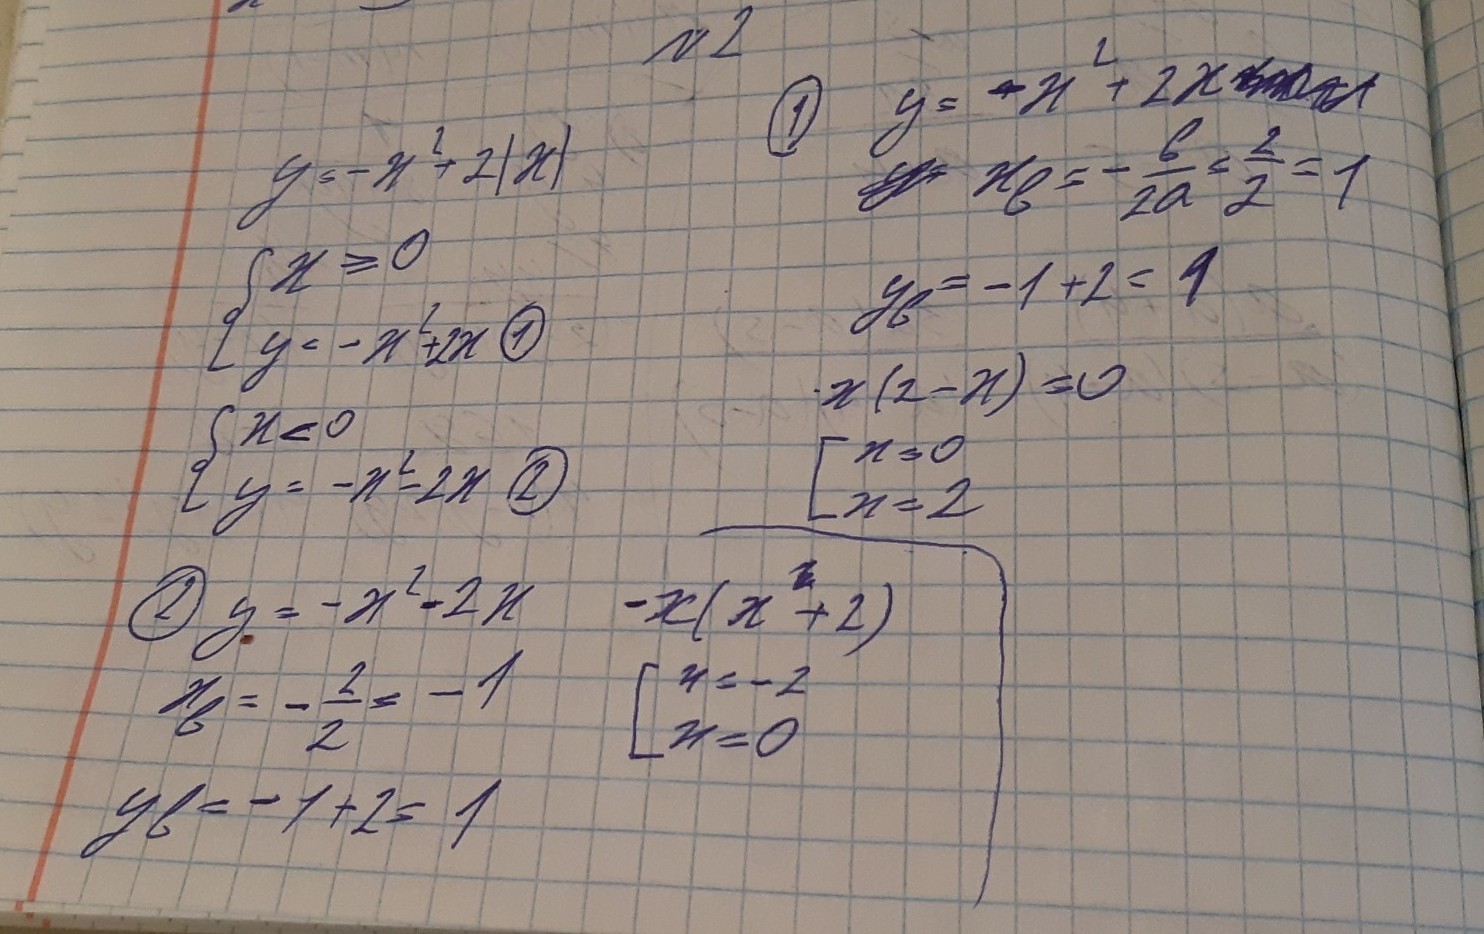 №2
y = -x² + 2|x|
{ x ≥ 0
{ y = -x² + 2x ①
{ x < 0
{ y = -x² - 2x ②
① y = -x² + 2x
xв = -в/2a = 2/2 = 1
yв = -1 + 2 = 1
x(2 - x) = 0
[ x = 0
[ x = 2
② y = -x² - 2x
xв = -2/2 = -1
yв = -1 + 2 = 1
-x(x + 2)
[ x = -2
[ x = 0